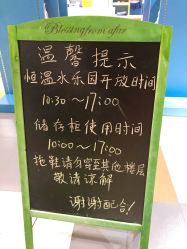 Blessing from afar
温馨提示
恒温水乐园开放时间
10:30~17:00
储存柜使用时间
10:00~17:00
拖鞋请勿穿至其他楼层
敬请谅解
谢谢配合!